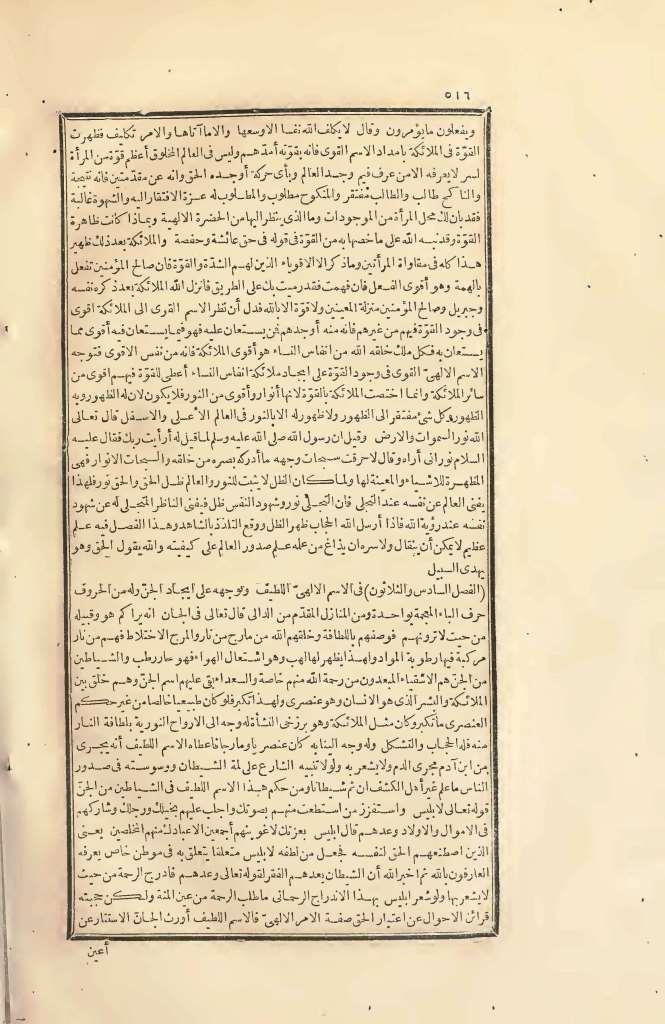 ٥١٦
ويفعلون ما يؤمرون وقال لا يكلف الله نفسا الا وسعها والاما آتاها والامر تكليف فظهرت
القوة فى الملائكة بامداد الاسم القوى فانه بقوته أمدهم وليس فى العالم المخلوق أعظم قوة من المرأة
لسر لا يعرفه الا من عرف فيم وجد العالم وبأى حركة أوجده الحق وانه عن مقدمتين فانه نتيجة
والناكح طالب والطالب مفتقر والمنكوح مطلوب والمطلوب له عزة الافتقار اليه والشهوة غالبة
فقد بان لك محل المرأة من الموجودات وما الذى ينظر اليها من الحضرة الالهية وبماذا كانت ظاهرة
القوة وقد نبه الله على ما خصها به من القوة فى قوله فى حق عائشة وحفصة والملائكة بعد ذلك ظهير
هذا كله فى مقاواة المرأتين وما ذكر الا الاقوياء الذين لهم الشدة والقوة فان صالح المؤمنين تفعل
بالهمة وهو أقوى الفعل فان فهمت فقد رميت بك على الطريق فانزل الله الملائكة بعد ذكره نفسه
وجبريل وصالح المؤمنين منزلة المعينين ولا قوة الا بالله فدل أن نظر الاسم القوى الى الملائكة اقوى
فى وجود القوة فيهم من غيرهم فانه منه أوجدهم فمن يستعان عليه فهو فيما يستعان فيه أقوى مما
يستعان به فكل ملك خلقه الله من انفاس النساء هو أقوى الملائكة فانه من نفس الاقوى فتوجه
الاسم الالهى القوى فى وجود القوة على ايجاد ملائكة انفاس النساء أعطى للقوة فيهم اقوى من
سائر الملائكة وانما اختصت الملائكة بالقوة لانها أنوار وأقوى من النور فلا يكون لان له الظهور وبه
الظهور وكل شئ مفتقر الى الظهور ولا ظهور له الا بالنور فى العالم الاعلى والاسفل قال تعالى
الله نور السموات والارض وقيل ان رسول الله صلى الله عليه وسلم لما قيل له أرأيت ربك فقال عليه
السلام نورانى أراه وقال لاحرقت سبحات وجهه ما أدركه بصره من خلقه والسبحات الانوار فهى
المظهرة للاشياء والمعينة لها ولما كان الظل لا يثبت للنور والعالم ظل الحق والحق نور فلهذا
يفنى العالم عن نفسه عند التجلى فان التجلى نور وشهود النفس ظل فيفنى الناظر المتجلى له عن شهود
نفسه عند رؤية الله فاذا أرسل الله الحجاب ظهر الظل ووقع التلذذ بالشاهد وهذا الفصل فيه علم
عظيم لا يمكن أن ينقال ولا سره ان يذاع من علمه علم صدور العالم على كيفيته والله يقول الحق وهو
يهدى السبيل
(الفصل السادس والثلاثون) فى الاسم الالهى اللطيف وتوجهه على ايجاد الجن وله من الحروف
حرف الباء المعجمة بواحدة ومن المنازل المقدم من الدالى قال تعالى فى الجان انه يراكم هو وقبيله
من حيث لا ترونهم فوصفهم باللطافة وخلقهم الله من مارج من نار والمرج الاختلاط فهم من نار
مركبة فيها رطوبة المواد ولهذا يظهر لها لهب وهو اشتعال الهواء فهو حار رطب والشياطين
من الجن هم الاشقياء المبعدون من رحمة الله منهم خاصة والسعداء بقى عليهم اسم الجن وهم خلق بين
الملائكة والبشر الذى هو الانسان وهو عنصرى ولهذا تكبر فلو كان طبيعيا خالصا من غير حكم
العنصرى ما تكبر وكان مثل الملائكة وهو برزخى النشأة له وجه الى الارواح النورية بلطافة النار
منه فله الحجاب والتشكل وله وجه الينا به كان عنصريا ومارجا فاعطاه الاسم اللطيف أنه يجرى
من ابن آدم مجرى الدم ولا يشعر به ولولا تنبيه الشارع على لمة الشيطان ووسوسته فى صدور
الناس ما علم غير أهل الكشف ان ثم شيطانا ومن حكم هذا الاسم اللطيف فى الشياطين من الجن
قوله تعالى لابليس واستفزز من استطعت منهم بصوتك واجلب عليهم بخيلك ورجلك وشاركهم
فى الاموال والاولاد وعدهم قال ابليس بعزتك لاغوينهم أجمعين الاعبادك منهم المخلصين يعنى
الذين اصطنعهم الحق لنفسه فجعل من لطفه لابليس متعلقا يتعلق به فى موطن خاص يعرفه
العارفون بالله ثم اخبر الله أن الشيطان يعدهم الفقر لقوله تعالى وعدهم فادرج الرحمة من حيث
لا يشعر بها ولو شعر ابليس بهذا الاندراج الرحمانى ما طلب الرحمة من عين المنة ولكن حجبته
قرائن الاحوال عن اعتبار الحق صفة الامر الالهى فالاسم اللطيف أورث الجان الاستتار عن
أعين